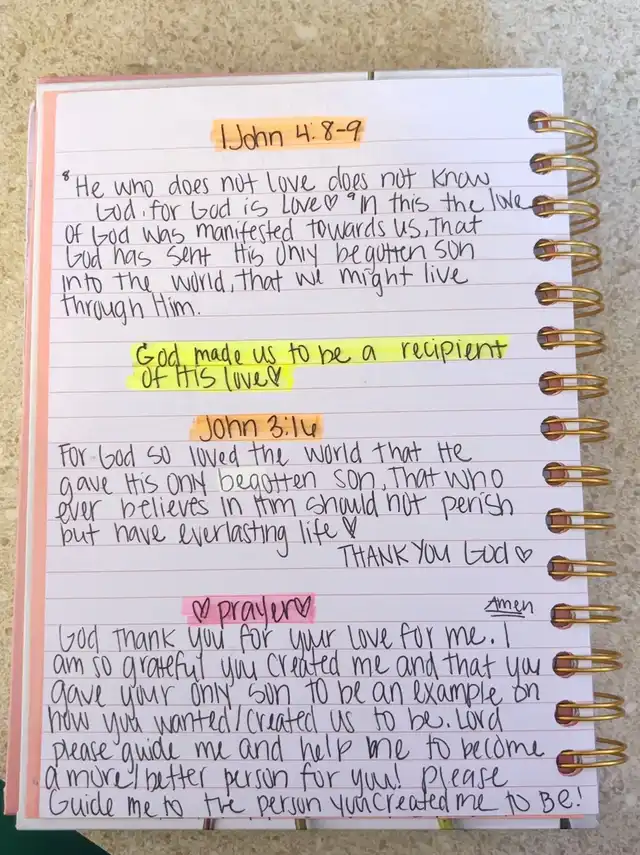 1 John 4:8-9
⁸He who does not love does not know
God, for God is love♡ ⁹In this the love
of God was manifested towards us, that
God has sent His only begotten son
into the world, that we might live
through Him.
God made us to be a recipient
of His love♡
John 3:16
For God so loved the world that He
gave His only begotten son, that who
ever believes in Him should not perish
but have everlasting life♡
THANK YOU God♡
♡prayer♡
Amen
God thank you for your love for me. I
am so grateful you created me and that you
gave your only son to be an example on
how you wanted/created us to be. Lord
please guide me and help me to become
a more/better person for you! Please
Guide me to the person you created me to BE!